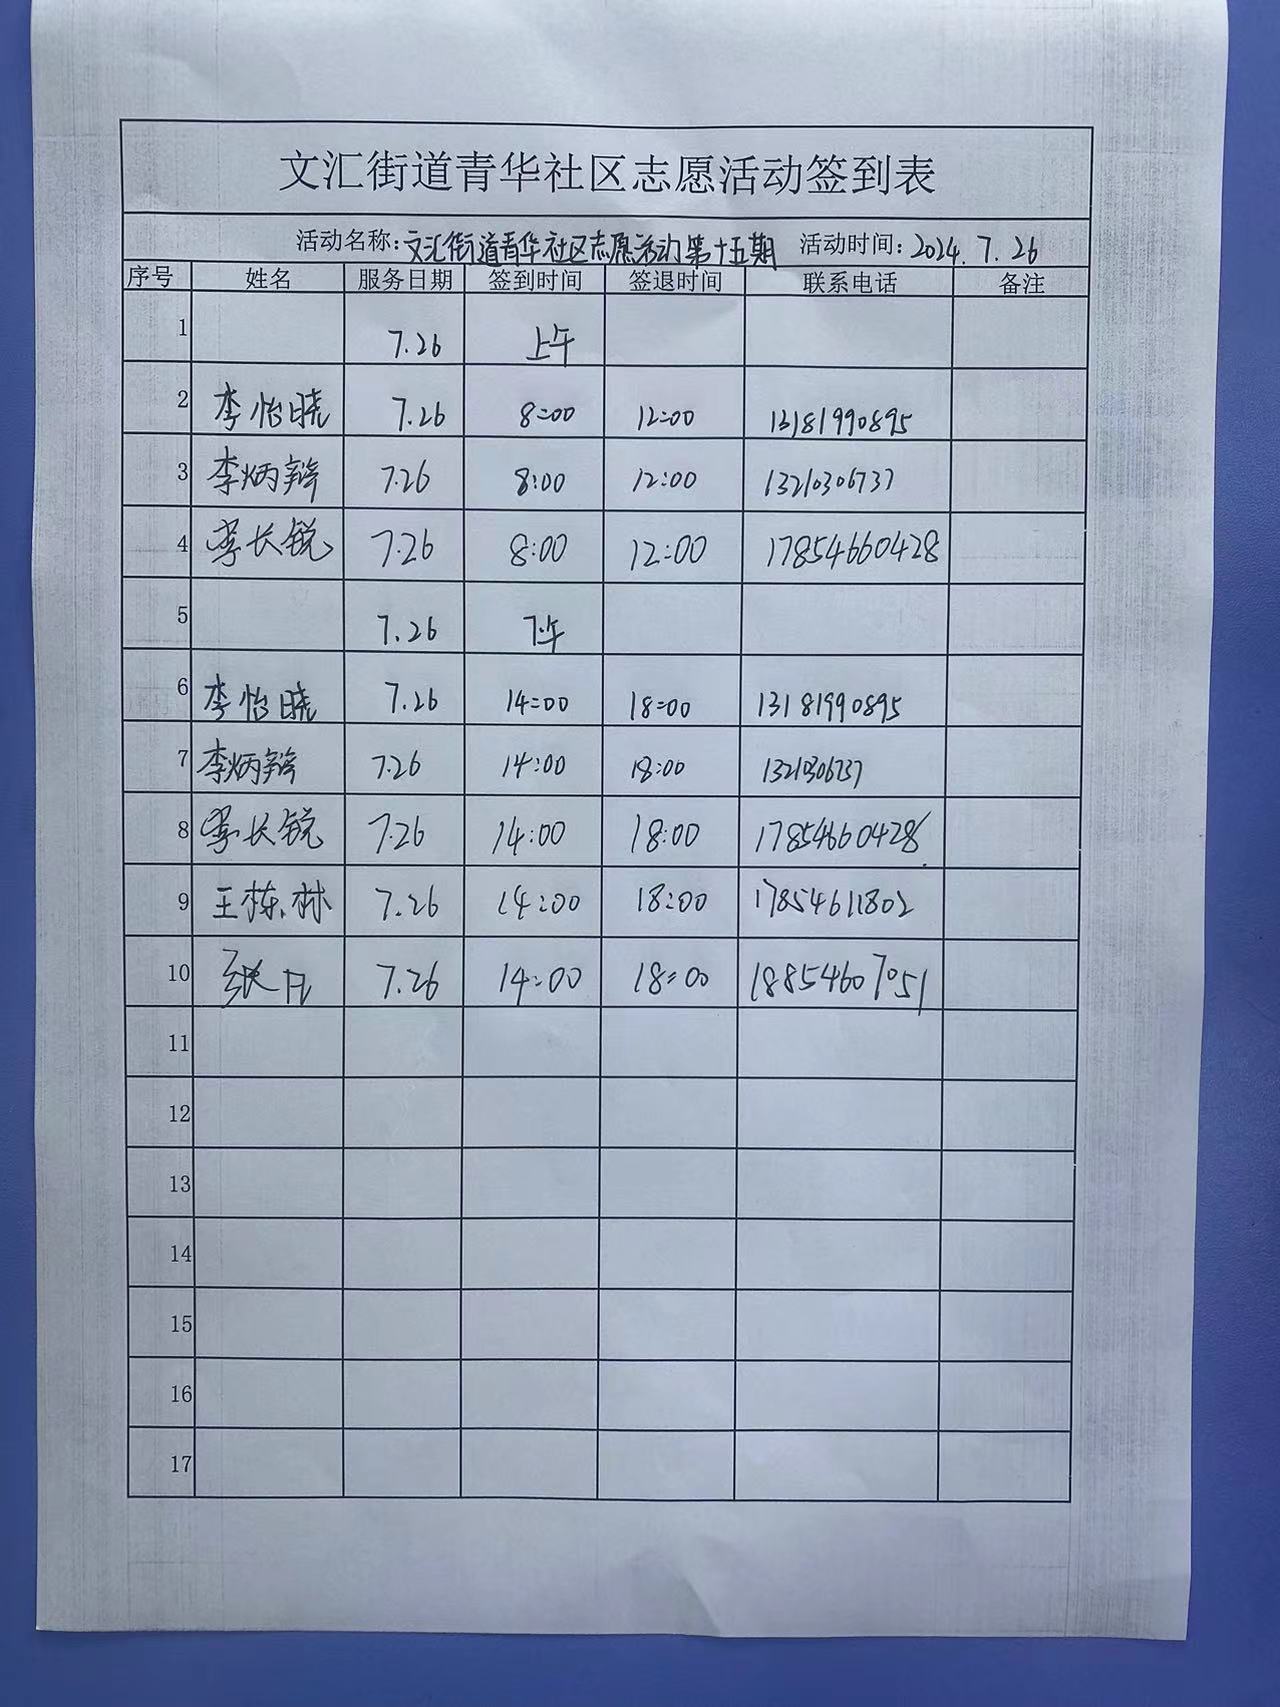 文汇街道青华社区志愿活动签到表
活动名称：文汇街道青华社区志愿活动第十五期 活动时间：2024.7.26
序号 姓名 服务日期 签到时间 签退时间 联系电话 备注
1 7.26 上午
2 李怡晓 7.26 8:00 12:00 13181990895
3 李炳 7.26 8:00 12:00 13210306737
4 李长锐 7.26 8:00 12:00 17854660428
5 7.26 下午
6 李怡晓 7.26 14:00 18:00 13181990895
7 李炳 7.26 14:00 18:00
8 李长锐 7.26 14:00 18:00 17854660428
9 王栋林 7.26 14:00 18:00 17854611802
10 张凡 7.26 14:00 18:00 18854607051
11
12
13
14
15
16
17